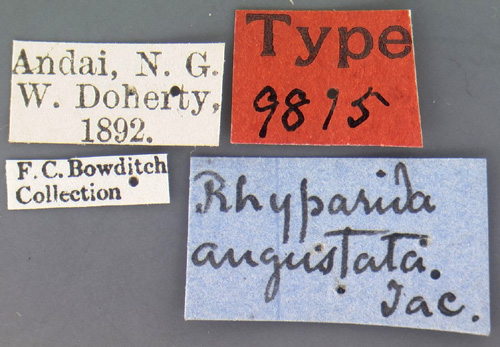 Andai, N. G.
W. Doherty,
1892.
Type
9815
F. C. Bowditch
Collection
Rhyparida
angustata.
Jac.